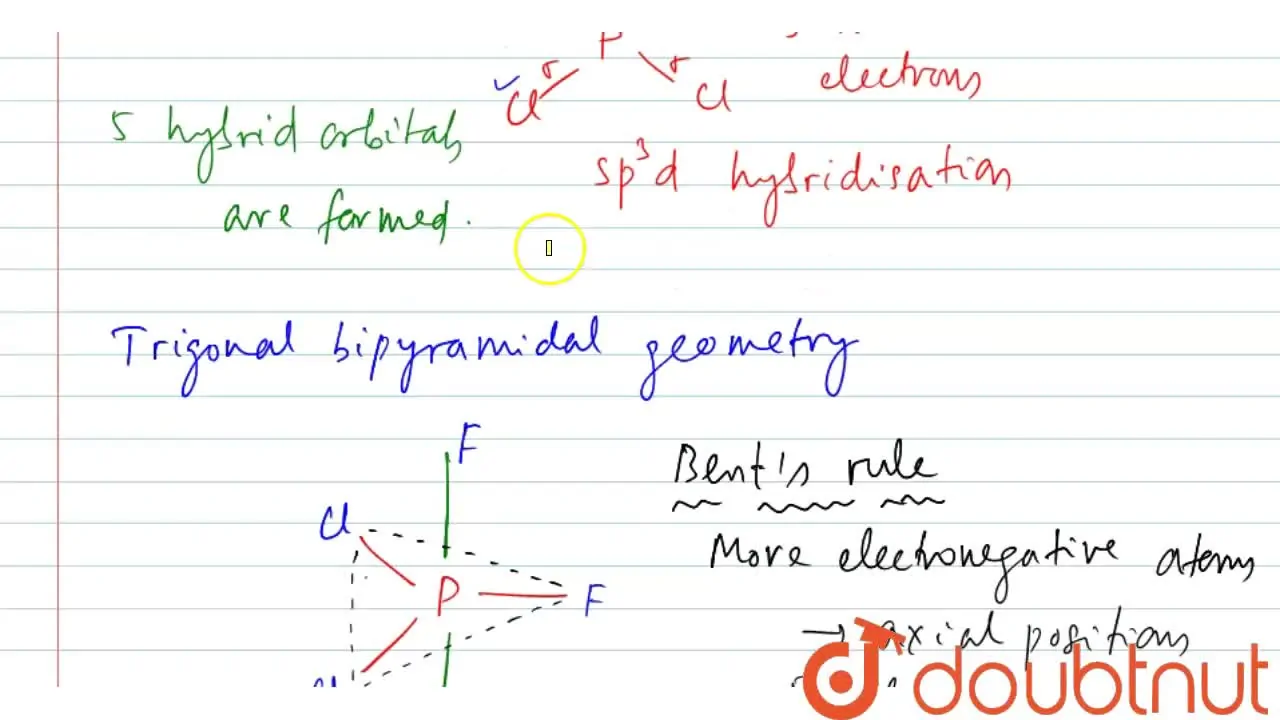 P
σ σ
Cl Cl electrons
5 hybrid orbitals
sp³d hybridisation
are formed.
Trigonal bipyramidal geometry
F
Bent's rule
Cl
More electronegative atoms
P F
→ axial positions
doubtnut